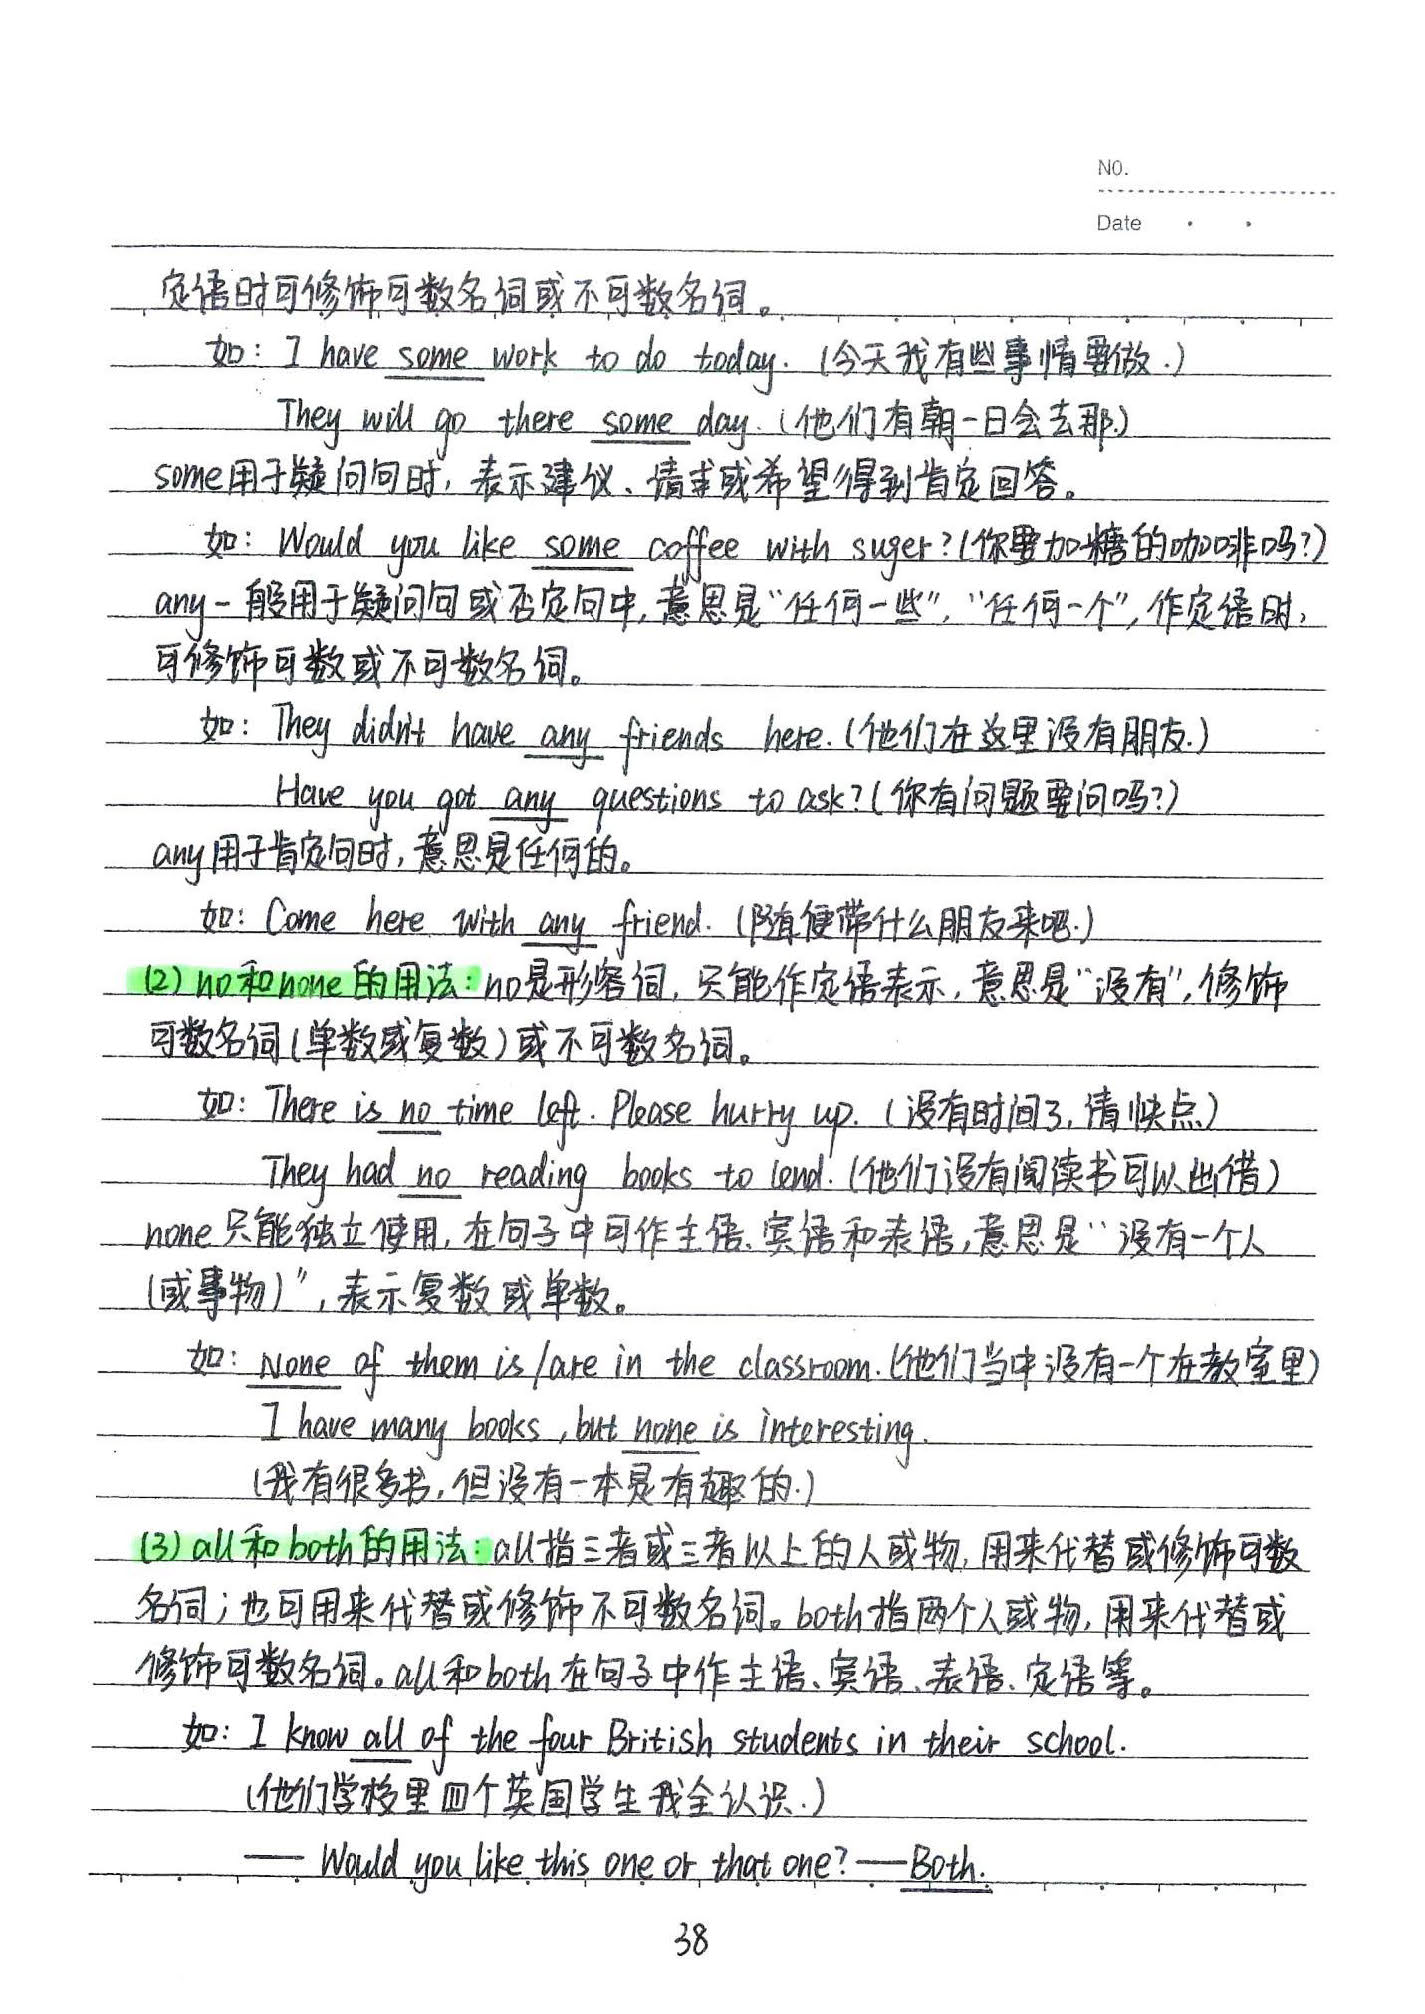 NO.
Date
定语时可修饰可数名词或不可数名词。
如: I have some work to do today. (今天我有些事情要做.)
They will go there some day. (他们有朝一日会去那.)
some用于疑问句时, 表示建议、请求或希望得到肯定回答。
如: Would you like some coffee with suger? (你要加糖的咖啡吗?)
any一般用于疑问句或否定句中, 意思是“任何一些”, “任何一个”, 作定语时,
可修饰可数或不可数名词。
如: They didn't have any friends here. (他们在这里没有朋友.)
Have you got any questions to ask? (你有问题要问吗?)
any用于肯定句时, 意思是任何的。
如: Come here with any friend. (随便带什么朋友来吧.)
(2) no和none的用法: no是形容词, 只能作定语表示, 意思是“没有”, 修饰
可数名词(单数或复数)或不可数名词。
如: There is no time left. Please hurry up. (没有时间了, 请快点)
They had no reading books to lend. (他们没有阅读书可以出借)
none只能独立使用, 在句子中可作主语、宾语和表语, 意思是“没有一个人
(或事物)”, 表示复数或单数。
如: None of them is/are in the classroom. (他们当中没有一个在教室里)
I have many books, but none is interesting.
(我有很多书, 但没有一本是有趣的.)
(3) all和both的用法: all指三者或三者以上的人或物, 用来代替或修饰可数
名词; 也可用来代替或修饰不可数名词。both指两个人或物, 用来代替或
修饰可数名词。all和both在句子中作主语、宾语、表语、定语等。
如: I know all of the four British students in their school.
(他们学校里四个英国学生我全认识.)
—— Would you like this one or that one? —— Both.
38